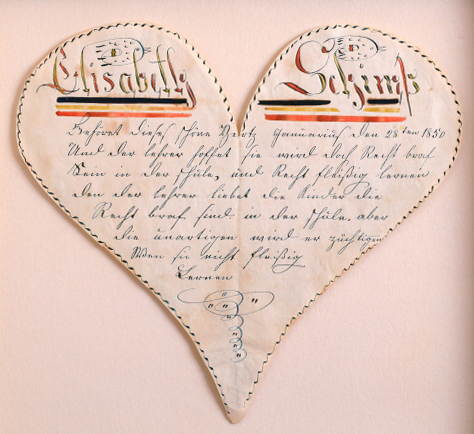 Elisabeth Schimpf
Gehöret dieses schöne Hertz Januarius den 28ten 1850
Und der lehrer hoffet sie wird doch Recht braf
Sein in der schule, und Recht fleißig lernen
den der lehrer liebet die Kinder die
Recht braf sind in der schule, aber
die unartigen wird er züchtigen
Wen sie nicht fleißig
Lernen